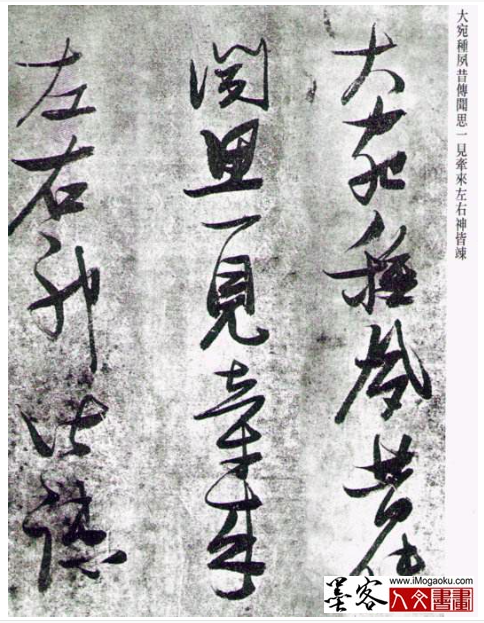 大宛種夙昔傳聞思一見牽來左右神皆竦
大宛種夙昔傳
聞思一見牽來
左右神皆竦
墨客
www.iMogaoku.com
人文書畫